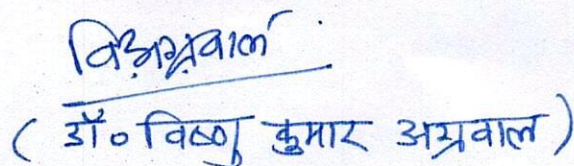 वि.अग्रवाल
( डॉ० विष्णु कुमार अग्रवाल )